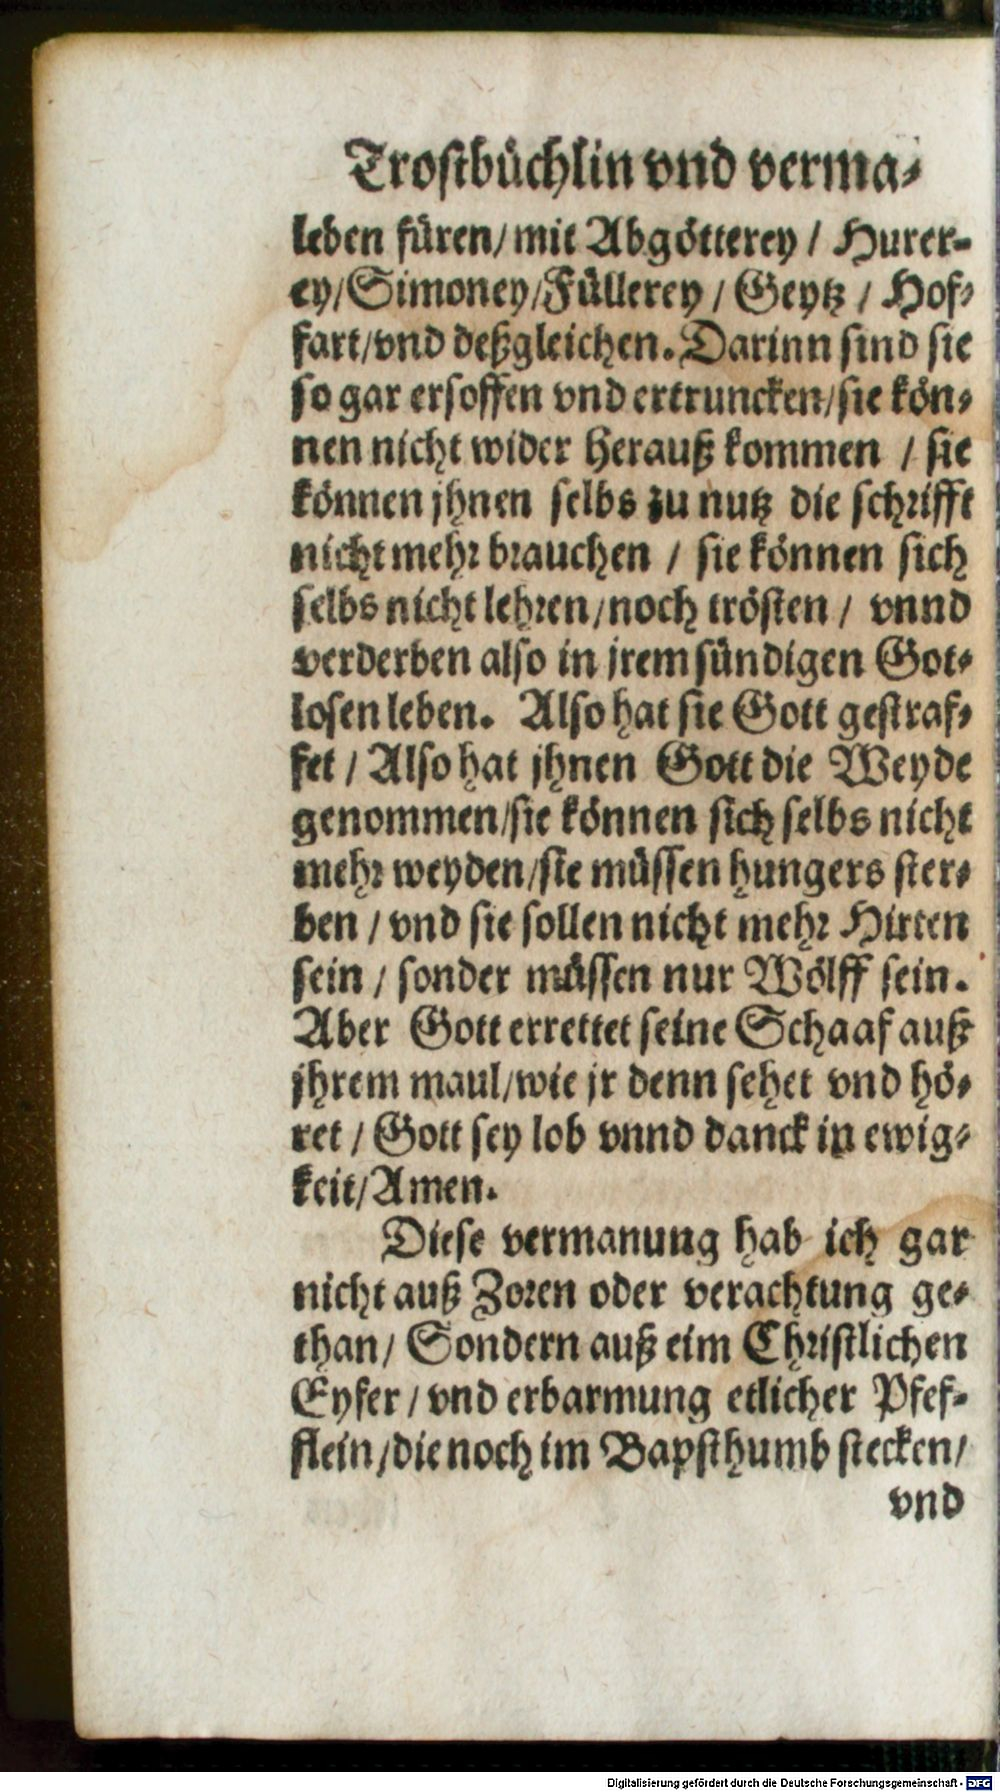 Trostbüchlin vnd verma-
leben füren/ mit Abgötterey / Hurer-
ey/Simoney/Füllerey / Geytz / Hof-
fart/vnd deßgleichen. Darinn sind sie
so gar ersoffen vnd ertruncken/sie kön-
nen nicht wider herauß kommen / sie
können jhnen selbs zu nutz die schrifft
nicht mehr brauchen / sie können sich
selbs nicht lehren/noch trösten / vnnd
verderben also in jrem sündigen Got-
losen leben. Also hat sie Gott gestraf-
fet / Also hat jhnen Gott die Weyde
genommen/sie können sich selbs nicht
mehr weyden/sie müssen hungers ster-
ben / vnd sie sollen nicht mehr Hirten
sein / sonder müssen nur Wölff sein.
Aber Gott errettet seine Schaaf auß
jhrem maul/wie jr denn sehet vnd hö-
ret / Gott sey lob vnnd danck in ewig-
keit/Amen.
Diese vermanung hab ich gar
nicht auß Zoren oder verachtung ge-
than/ Sondern auß eim Christlichen
Eyfer / vnd erbarmung etlicher Pfef-
flein/die noch im Bapsthumb stecken/
vnd
Digitalisierung gefördert durch die Deutsche Forschungsgemeinschaft - DFG